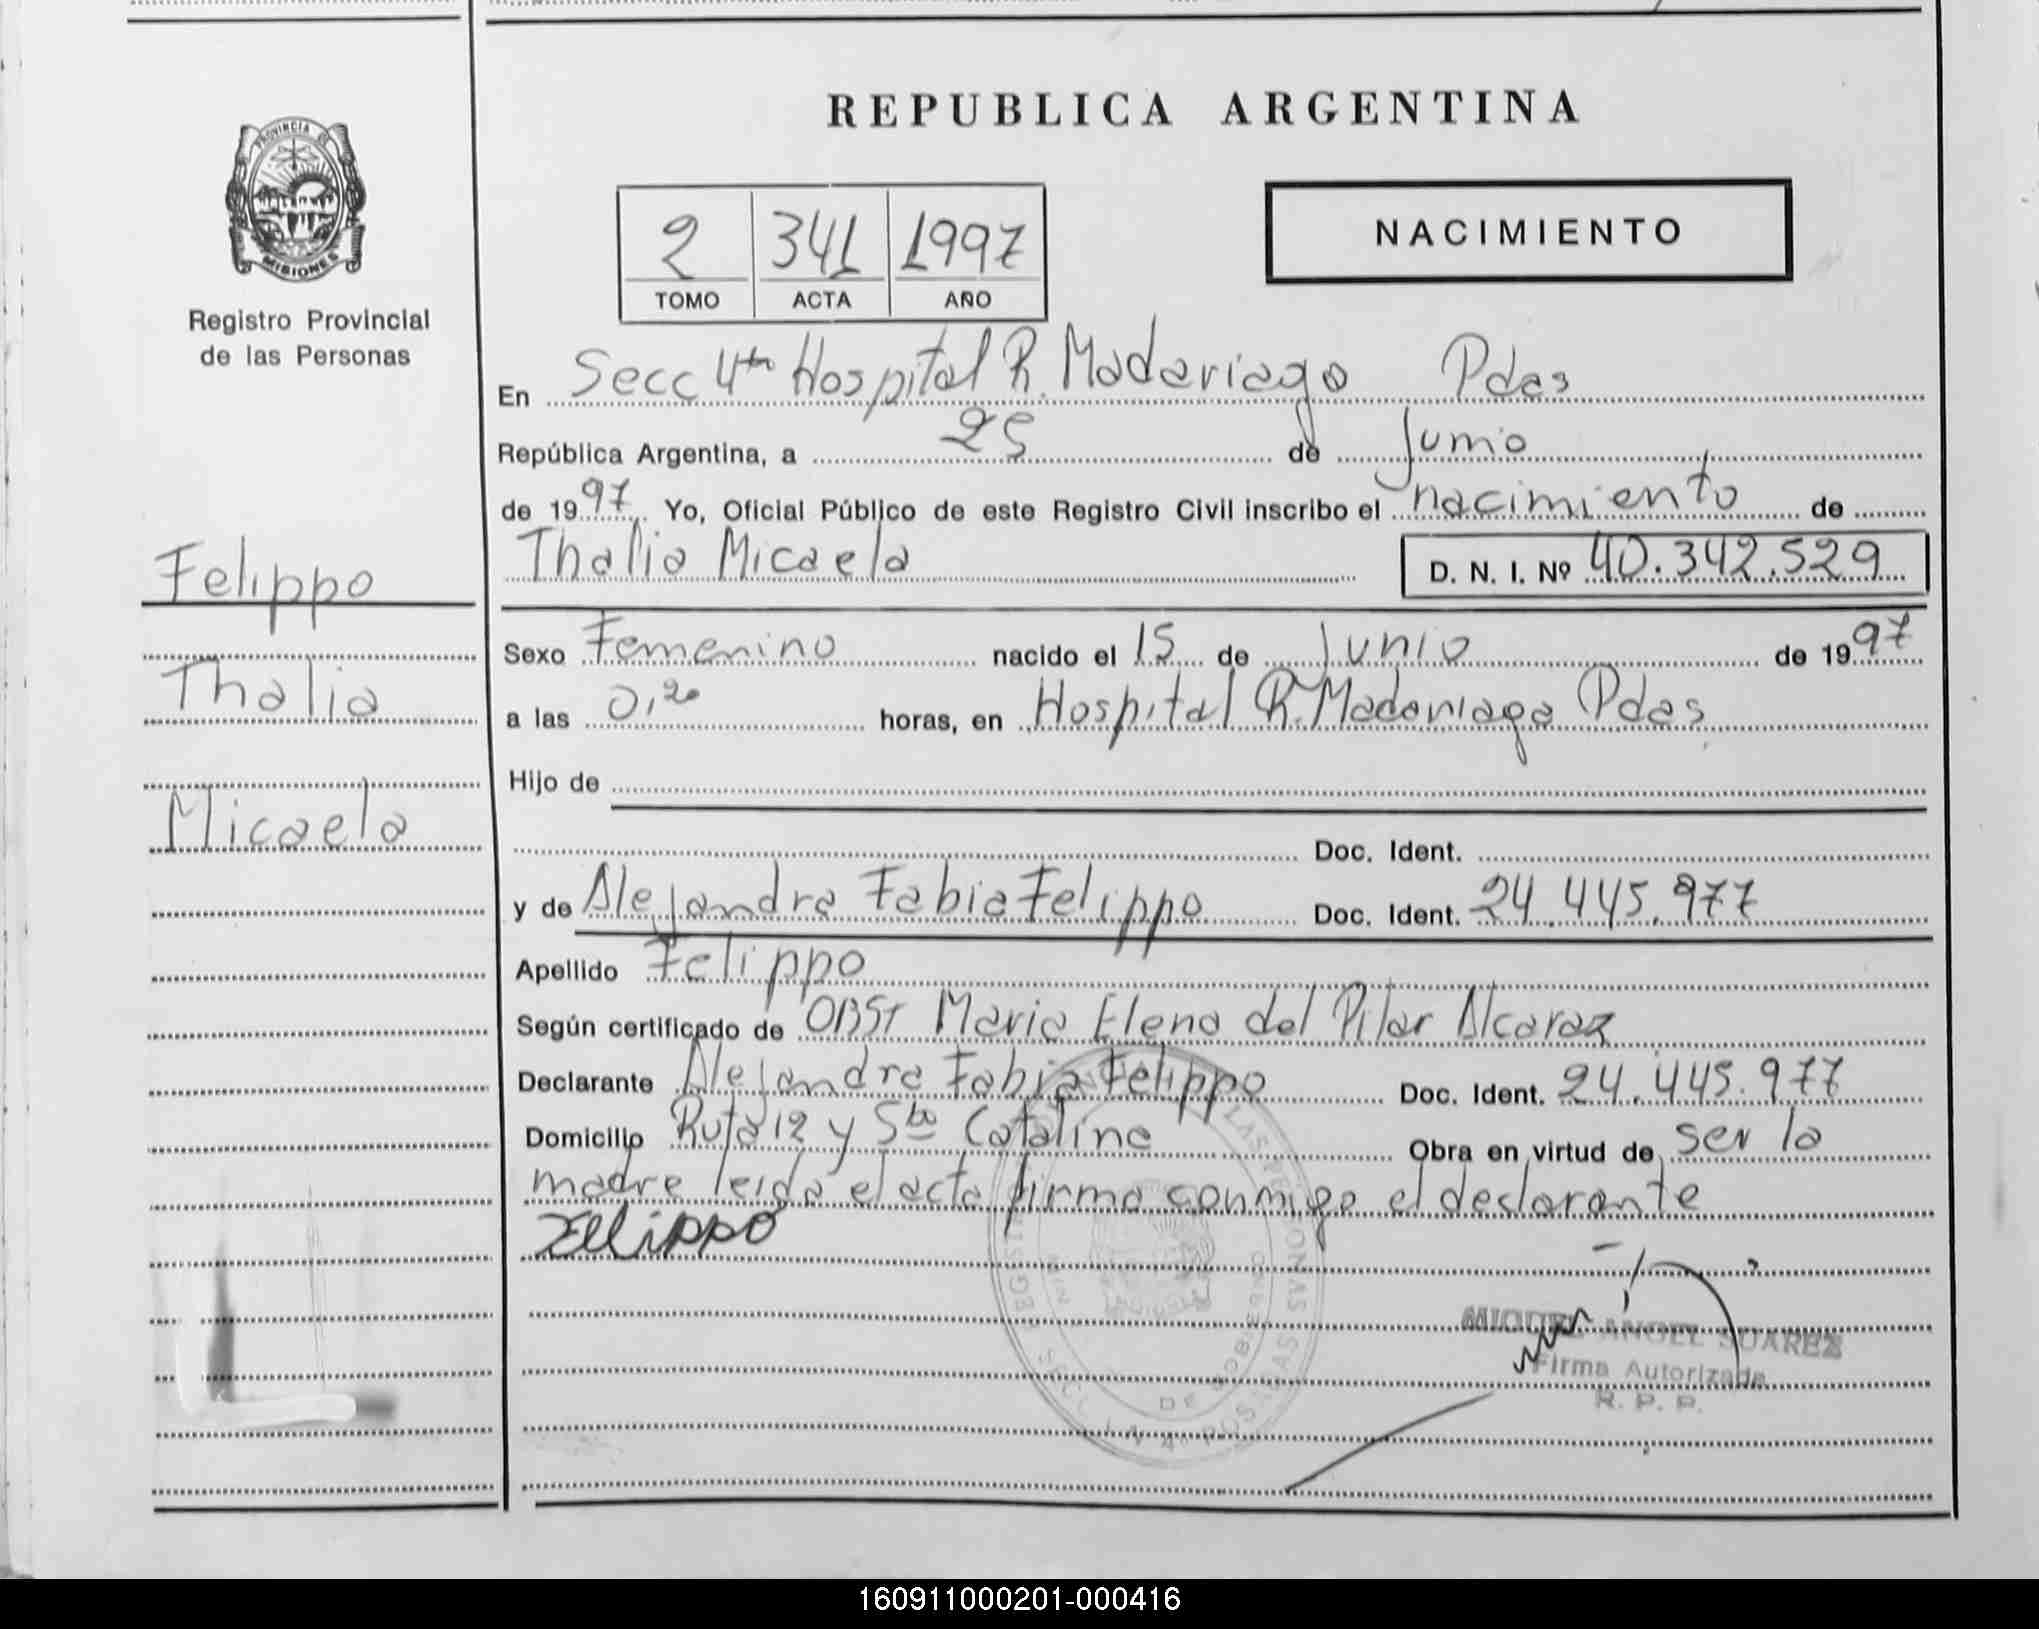 REPUBLICA ARGENTINA
PROVINCIA DE
MISIONES
Registro Provincial
de las Personas
2 341 1997
TOMO ACTA AÑO
NACIMIENTO
En Secc 4ta Hospital R. Madariaga Pdas
República Argentina, a 25 de Junio
de 1997 Yo, Oficial Público de este Registro Civil inscribo el nacimiento de
Thalia Micaela D. N. I. Nº 40.342.529
Felippo
Thalia
Micaela
Sexo Femenino nacido el 15 de Junio de 1997
a las 0,20 horas, en Hospital R. Madariaga Pdas
Hijo de
Doc. Ident.
y de Alejandra Fabia Felippo Doc. Ident. 24.445.977
Apellido Felippo
Según certificado de OBST Maria Elena del Pilar Alcaraz
Declarante Alejandra Fabia Felippo Doc. Ident. 24.445.977
Domicilio Ruta 12 y Sta Catalina Obra en virtud de ser la
madre leida el acta firma conmigo el declarante
Felippo
MIGUEL ANGEL SUAREZ
Firma Autorizada
R. P. P.
160911000201-000416